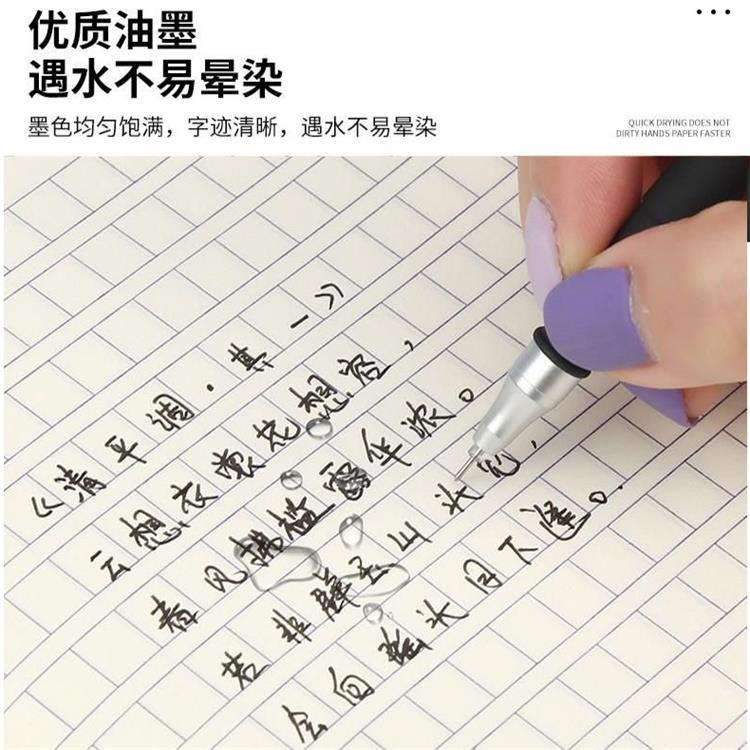 优质油墨
遇水不易晕染
墨色均匀饱满，字迹清晰，遇水不易晕染
QUICK DRYING DOES NOT
DIRTY HANDS PAPER FASTER
《清平调·其一》
云想衣裳花想容，
春风拂槛露华浓。
若非群玉山头，
会向瑶头月下逢。